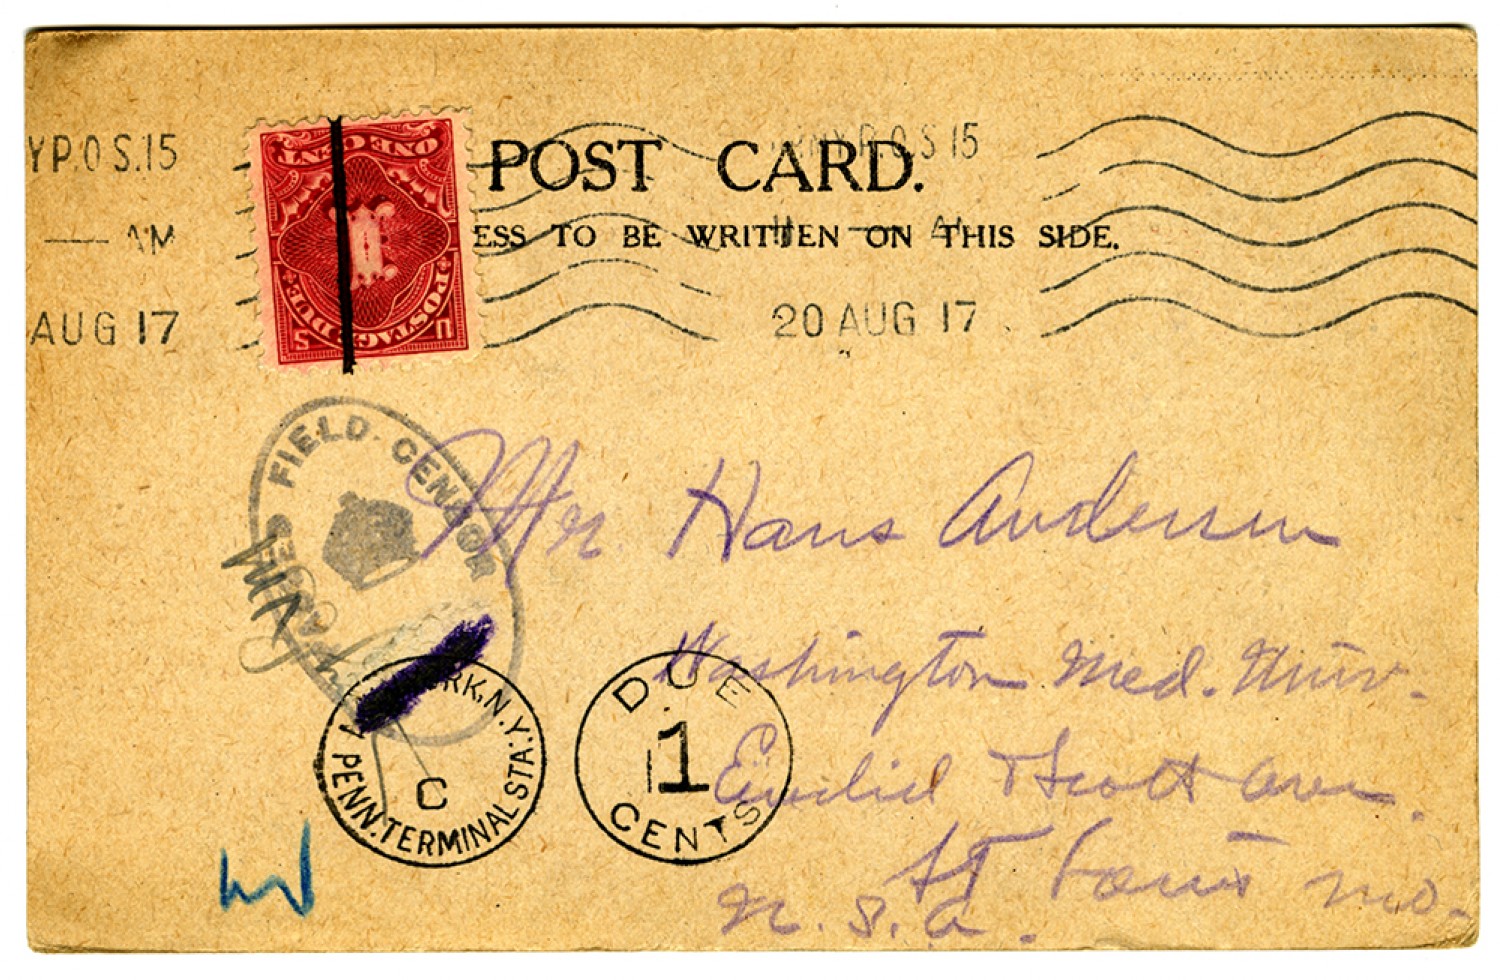 YP.O S.15
AM
AUG 17
ONE CENT
1
U S
POSTAGE DUE
POST CARD.
ESS TO BE WRITTEN ON THIS SIDE.
P.O S 15
20 AUG 17
FIELD CENSOR
Mr. Hans Andersen
Washington Med. Univ.
Euclid & Scott Ave.
St Louis Mo.
U. S. A.
RK, N.Y.
PENN. TERMINAL STA.
C
DUE
1
CENTS